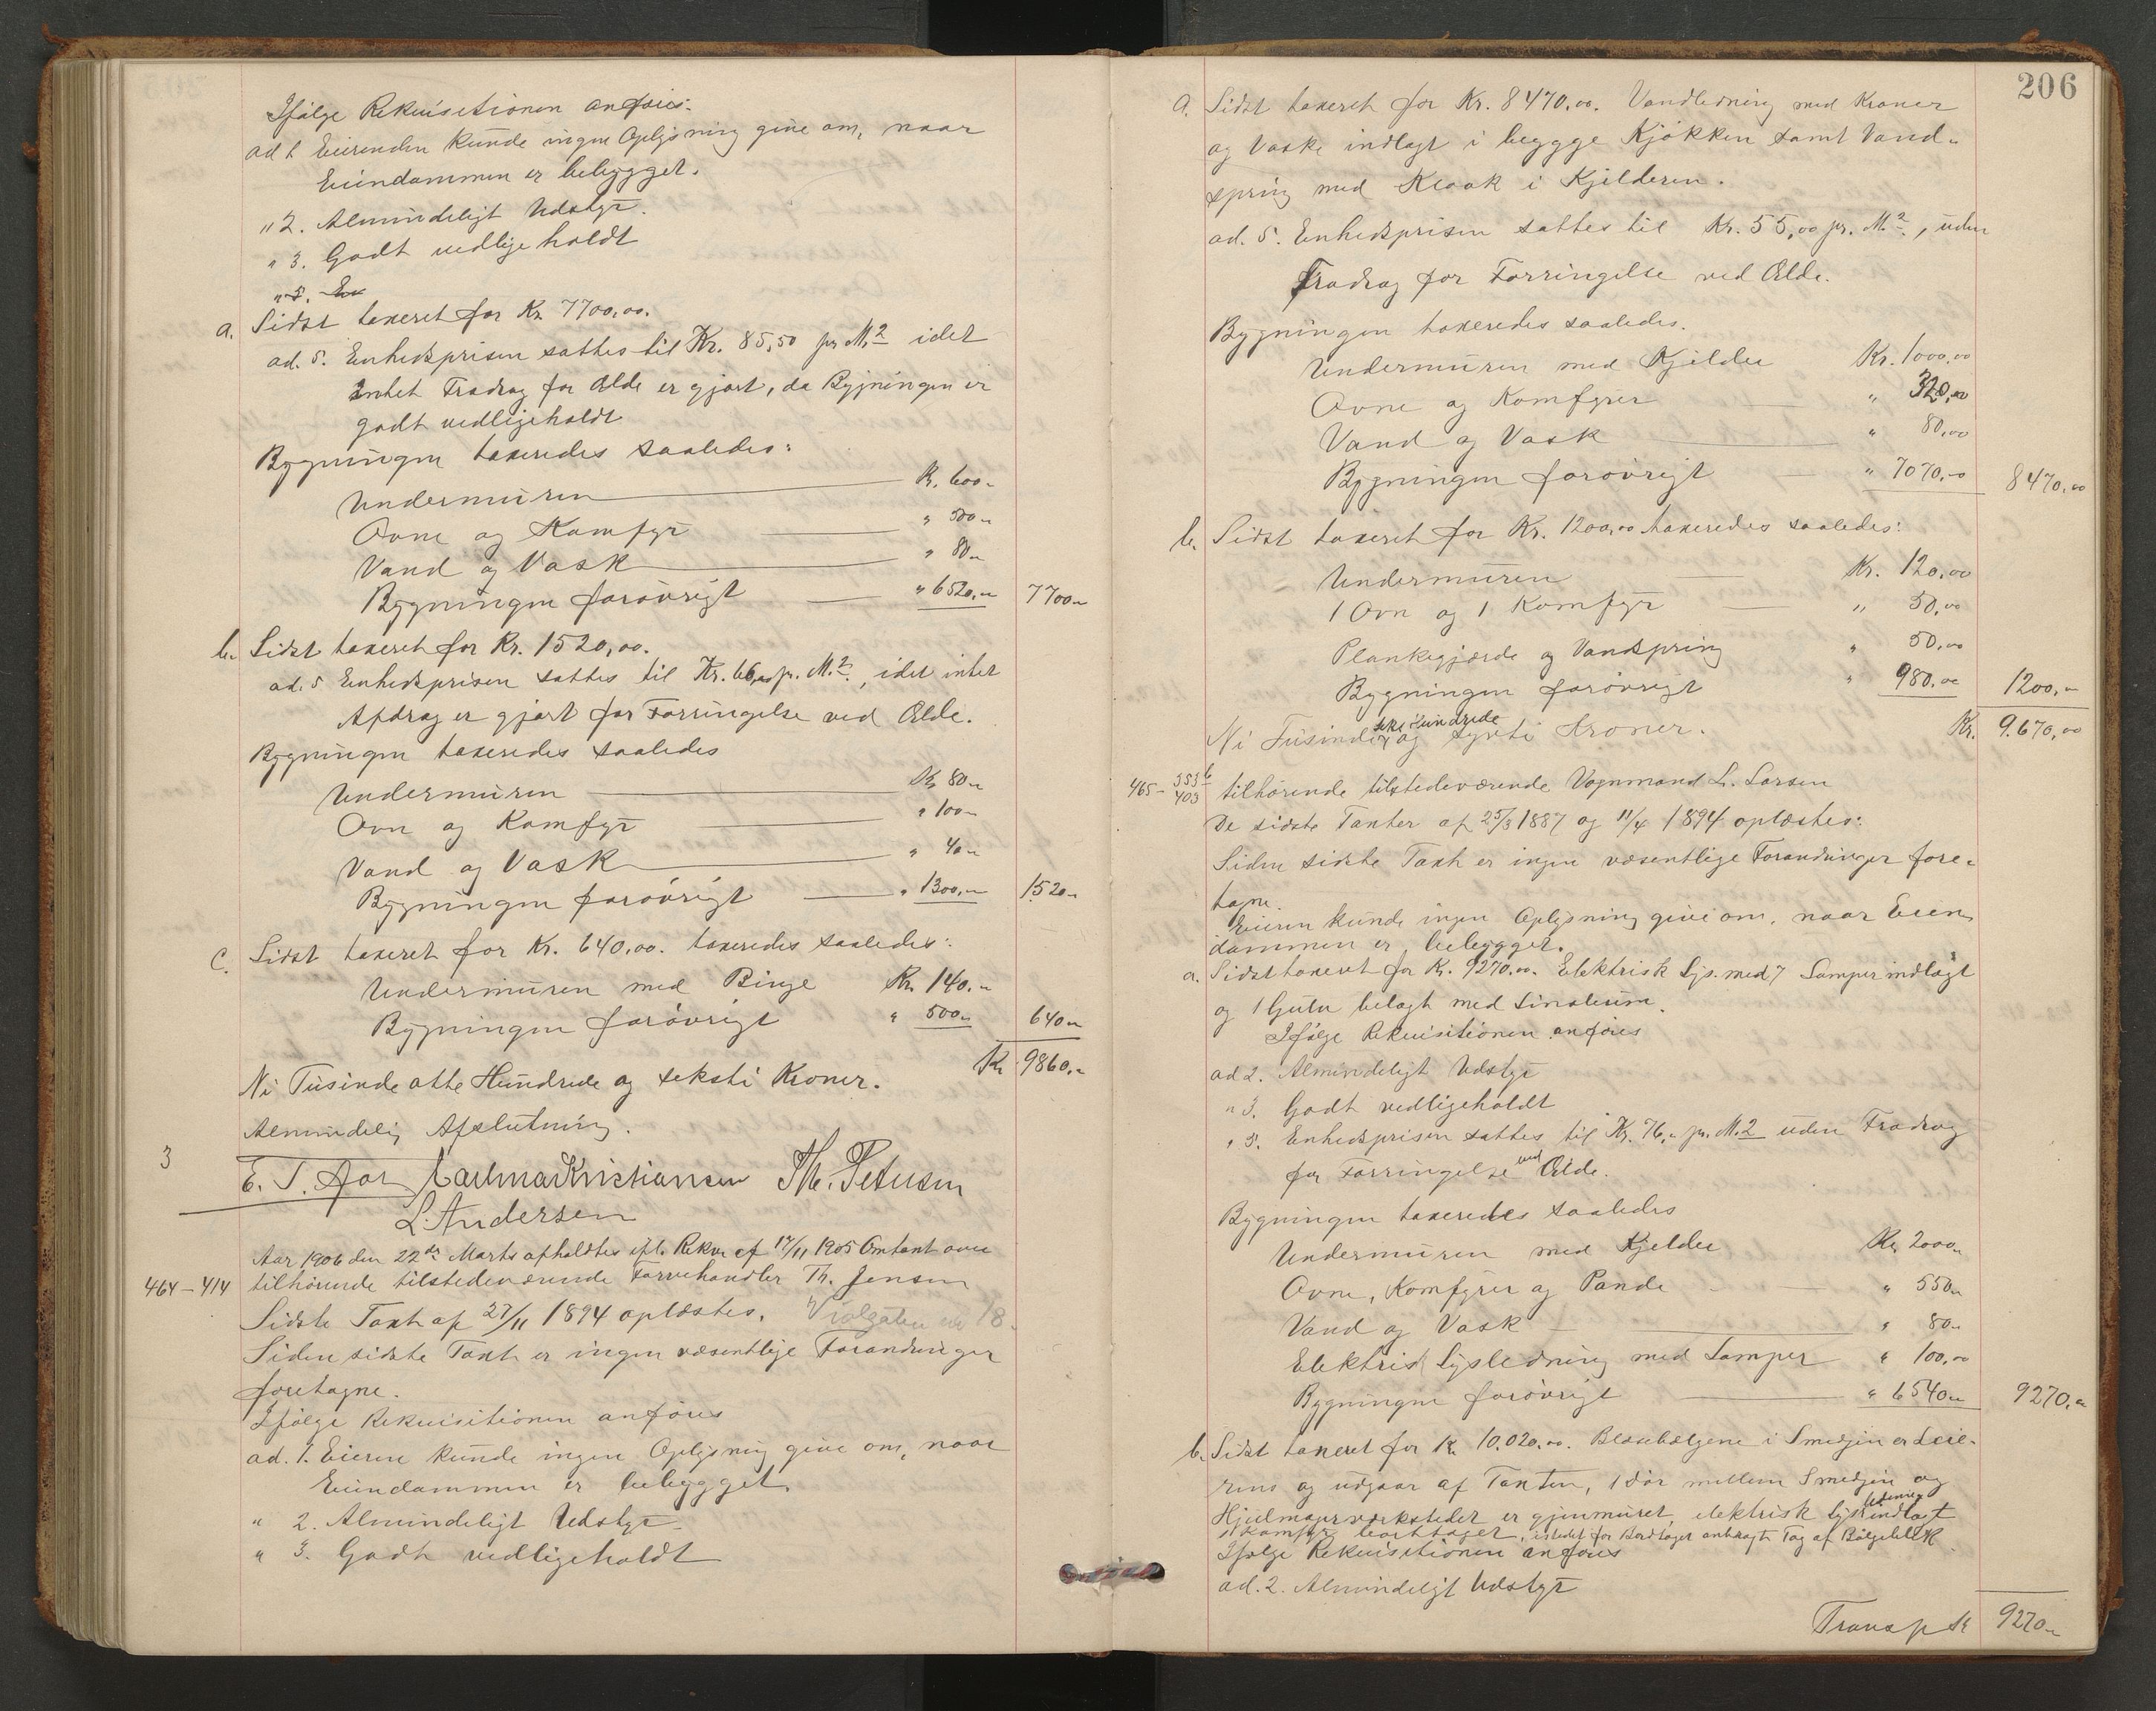 Ifølge Rekvisitionen anføres:
ad 1 Eierinden kunde ingen Oplysning give om, naar
Eiendommen er bebygget.
" 2. Almindeligt Udstyr.
" 3. Godt vedligeholdt
" 5. En
a. Sidst taxeret for Kr. 7700,00.
ad. 5. Enhedsprisen sattes til Kr. 85,50 pr M.2 idet
Intet Fradrag for Ælde er gjort, da Bygningen er
godt vedligeholdt
Bygningen taxeredes saaledes:
Undermuren Kr. 600 "
Ovne og Komfyr " 500 "
Vand og Vask " 80 "
Bygningen forøvrigt " 6520,00 7700 "
b. Sidst taxeret for Kr. 1520,00.
ad. 5 Enhedsprisen sattes til Kr. 66,00 pr. M.2, idet intet
Afdrag er gjort for Forringelse ved Ælde.
Bygningen taxeredes saaledes
Undermuren Kr 80 "
Ovn og Komfyr " 100 "
Vand og Vask " 40 "
Bygningen forøvrigt " 1300,00 1520 "
c. Sidst taxeret for Kr. 640,00. taxeredes saaledes:
Undermuren med Binge Kr. 140 "
Bygningen forøvrigt " 500 " 640 "
Kr. 9860 "
Ni Tusinde otte Hundrede og seksti Kroner.
Almindelig Afslutning.
3
E. T. Aas Karl Kristiansen Th. Petersen
L. Andersen
Aar 1906 den 22de Marts afholdtes ifl. Rekv. af 17/11 1905 Omtaxt over
464 - 414 tilhørende tilstedeværende Farvehandler Th. Jensen
Sidste Taxt af 27/11 1894 oplæstes. Violgaten no 18.
Siden sidste Taxt er ingen væsentlige Forandringer
foretagne.
Ifølge Rekvisitionen anføres
ad. 1. Eieren kunde ingen Oplysning give om, naar
Eiendommen er bebygget.
" 2. Almindeligt Udstyr.
" 3. Godt vedligeholdt
206
a. Sidst taxeret for Kr. 8470,00. Vandledning med Kraner
og Vaske indlagt i beggge Kjøkken samt Vand-
spring med Kloak i Kjelderen.
ad. 5. Enhedsprisen sattes til Kr. 55,00 pr. M.2, uden
Fradrag for Forringelse ved Ælde.
Bygningen taxeredes saaledes.
Undermuren med Kjelder Kr. 1000,00
Ovne og Komfyrer " 320,00
Vand og Vask " 80,00
Bygningen forøvrigt " 7070,00 8470,00
b. Sidst taxeret for Kr. 1200,00 taxeredes saaledes:
Undermuren Kr. 120,00
1 Ovn og 1 Komfyr " 50,00
Plankegjærde og Vandspring " 50,00
Bygningen forøvrigt " 980,00 1200,00
Ni Tusinde seks Hundrede og sytti Kroner. Kr. 9.670,00
465 - 353b/403 tilhørende tilstedeværende Vognmand L. Larsen
De sidste Taxter af 25/3 1887 og 11/4 1894 oplæstes:
Siden sidste Taxt er ingen væsentlige Forandringer fore-
tagne.
Eieren kunde ingen Oplysning give om, naar Eien-
dommen er bebygget.
a. Sidst taxeret for Kr. 9270,00. Elektrisk Lys med 7 Lamper indlagt
og 1 Gulv belagt med Linoleum.
Ifølge Rekvisitionen anføres
ad 2. Almindeligt Udstyr
" 3. Godt vedligeholdt
" 5. Enhedsprisen sattes til Kr. 76," pr. M.2 uden Fradrag
for Forringelse ved Ælde.
Bygningen taxeredes saaledes
Undermuren med Kjelder Kr. 2000 "
Ovne, Komfyrer og Pande " 550 "
Vand og Vask " 80 "
Elektrisk Lysledning med Lamper " 100,00
Bygningen forøvrigt " 6540 " 9270,00
b. Sidst taxeret for Kr 10.020,00. Blæsebælgene i Smedjen er Leie-
rens og udgaar af Taxten, 1 Dør mellem Smedjen og
Hjulmagerværkstedet er gjenmuret, elektrisk Lys indlagt
1 Komfyr borttaget, istedet for Bordtaget anbragt Tag af Bølgeblik.
Ifølge Rekvisitionen anføres
ad. 2. Almindeligt Udstyr
Transp Kr 9270 "